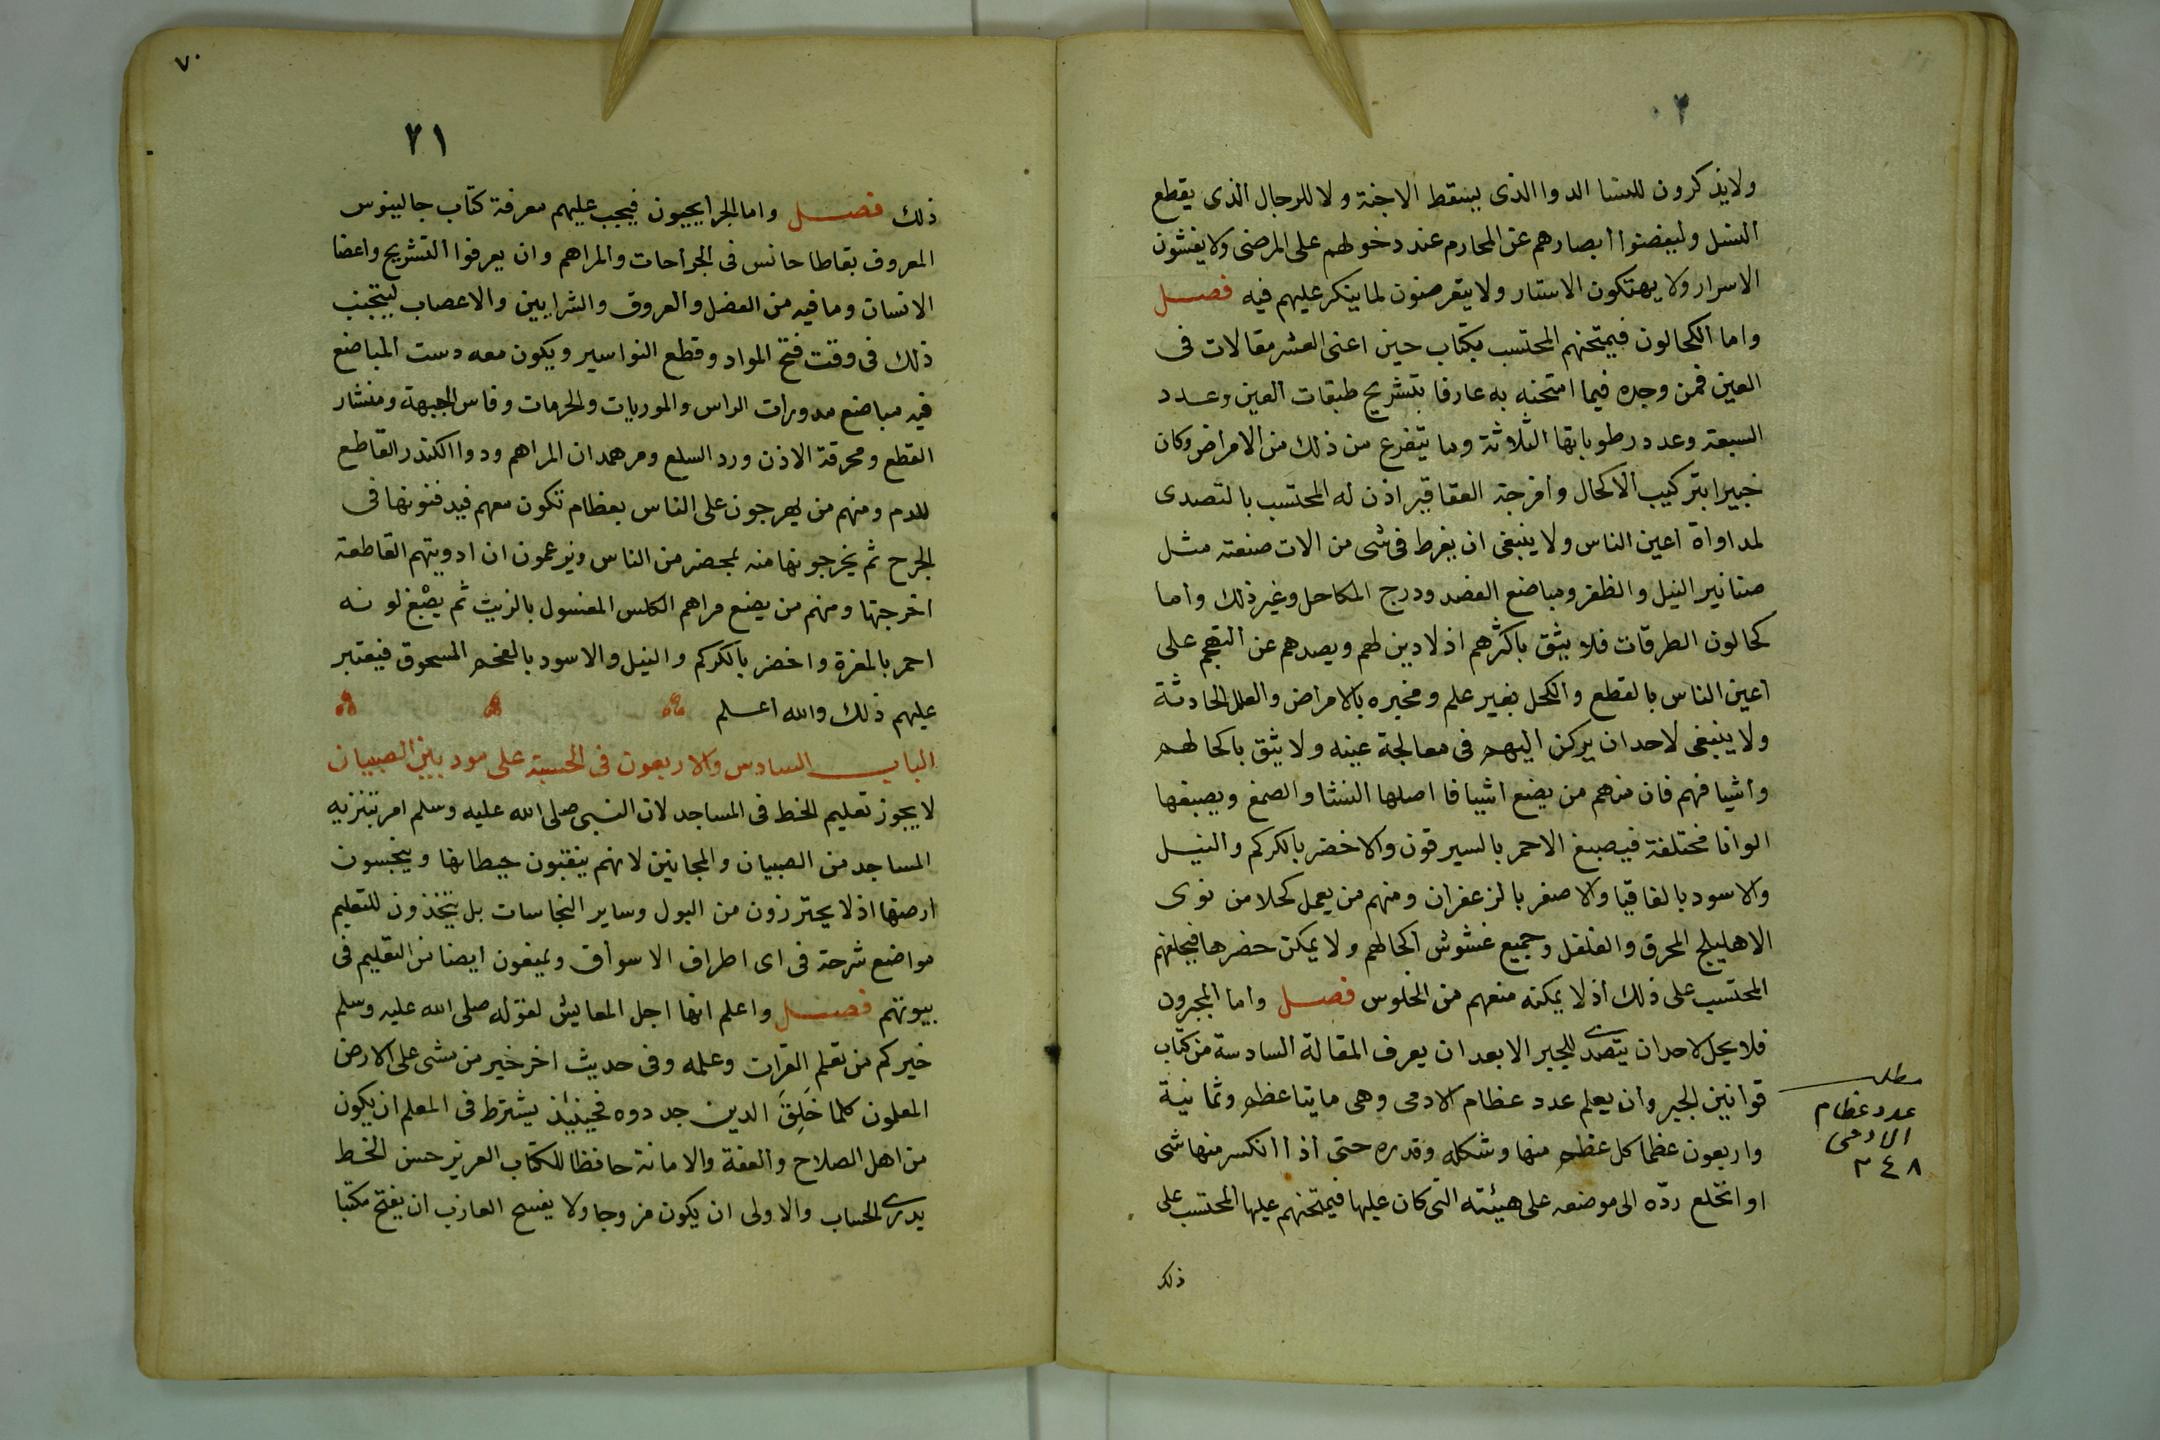 ٢٠
ولا يذكرون للنسا الدوا الذى يسقط الاجنة ولا للرجال الذى يقطع
النسل وليغضوا أبصارهم عن المحارم عند دخولهم على المرضى ولا يفشون
الاسرار ولا يهتكون الاستار ولا يتعرضون لما ينكر عليهم فيه فصل
واما الكحالون فيمتحنهم المحتسب بكتاب حنين اعنى العشر مقالات فى
العين فمن وجده فيما امتحنه به عارفا بتشريح طبقات العين وعدد
السبعة وعدد رطوباتها الثلاثة وما يتفرع من ذلك من الامراض وكان
خبيرا بتركيب الاكحال وأمزجة العقاقير اذن له المحتسب بالتصدى
لمداواة اعين الناس ولا ينبغى ان يفرط فى شى من الات صنعته مثل
صنانير النيل والظفر ومباضع الفصد ودرج المكاحل وغير ذلك واما
كحالون الطرقات فلا يثق باكثرهم اذ لا دين لهم ويصدهم عن التهجم على
اعين الناس بالقطع والكحل بغير علم ومخبره بالامراض والعلل الحادثة
ولا ينبغى لاحد ان يركن اليهم فى معالجة عينه ولا يثق باكحالهم
وأشيافهم فان منهم من يضع اشيافا اصلها النشا والصمغ ويصبغها
الوانا مختلفة فيصبغ الاحمر بالسيرقون والاخضر بالكركم والنيل
والاسود بالقاقيا والاصفر بالزعفران ومنهم من يعمل كحلا من نوى
الاهليلج المحرق والفلفل وجميع غشوش اكحالهم ولا يمكن حصرها فيحلفهم
المحتسب على ذلك اذ لا يمكنه منعهم من الجلوس فصل واما المجبرون
فلا يحل لاحد ان يتصدى للجبر الا بعد ان يعرف المقالة السادسة من كتاب
قوانين الجبر وان يعلم عدد عظام الادمى وهى مايتا عظم وثمانية
واربعون عظما كل عظم منها وشكله وقدره حتى اذا انكسر منها شى
او انخلع ردّه الى موضعه على هيئته التى كان عليها فيمتحنهم عليها المحتسب على
ذلك
مطلب
عدد عظام
الادمى
٢٤٨
٧٠
٢١
ذلك فصل واما الجرايحيون فيجب عليهم معرفة كتاب جالينوس
المعروف بقاطاجانس فى الجراحات والمراهم وان يعرفوا التشريح واعضا
الانسان وما فيه من العضل والعروق والشرايين والاعصاب ليتجنب
ذلك فى وقت فتح المواد وقطع النواسير ويكون معه دست المباضع
فيه مباضع مدورات الراس والموربات والحرمات وفاس الجبهة ومنشار
القطع ومحرقة الاذن ورد السلع ومرهمدان المراهم ودوا الكندر القاطع
للدم ومنهم من يهرجون على الناس بعظام تكون معهم فيدفنونها فى
الجرح ثم يخرجونها منه بمحضر من الناس ويزعمون ان ادويتهم القاطعة
اخرجتها ومنهم من يضع مراهم الكلس المغسول بالزيت ثم يصبغ لونه
احمر بالمغرة واخضر بالكركم والنيل والاسود بالفحم المسحوق فيعتبر
عليهم ذلك والله أعلم
الباب السادس والاربعون فى الحسبة على مودبين الصبيان
لا يجوز تعليم الخط فى المساجد لان النبى صلى الله عليه وسلم امر بتنزيه
المساجد من الصبيان والمجانين لانهم ينقبون حيطانها وينجسون
ارضها اذ لا يحترزون من البول وساير النجاسات بل يتخذون للتعليم
مواضع شرحة فى اى اطراف الاسواق ويمنعون ايضا من التعليم فى
بيوتهم فصل واعلم انها اجل المعايش لقوله صلى الله عليه وسلم
خيركم من تعلم القران وعلمه وفى حديث اخر خير من مشى على الارض
المعلمون كلما خَلِقَ الدين جددوه فحينئذ يشترط فى المعلم ان يكون
من اهل الصلاح والعفة والامانة حافظا للكتاب العزيز حسن الخط
يدرى الحساب والاولى ان يكون مزوجا ولا يفسح العازب ان يفتح مكتبا